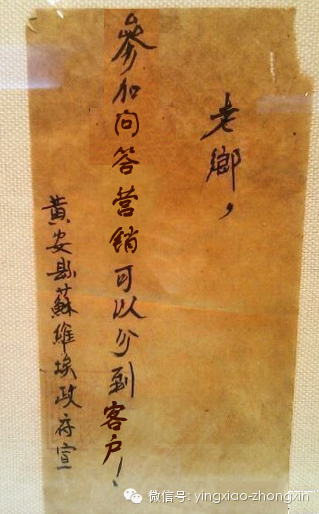 老鄉，
參加问答营銷可以分到客户！
黃安縣蘇維埃政府宣
微信号: yingxiao-zhongxin